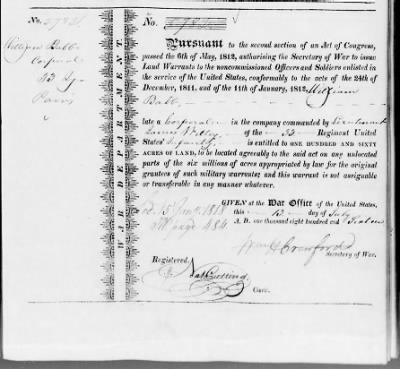 No.
William Babb
Corporal
33
WAR DEPARTMENT
No.
Pursuant to the second section of an Act of Congress,
passed the 6th of May, 1812, authorising the Secretary of War to issue
Land Warrants to the noncommissioned Officers and Soldiers enlisted in
the service of the United States, conformably to the acts of the 24th of
December, 1811, and of the 11th of January, 1812, William
Babb
late a Corporal in the company commanded by Lieutenant
of the 33 Regiment United
States' Infantry is entitled to ONE HUNDRED AND SIXTY
ACRES OF LAND, to be located agreeably to the said act on any unlocated
parts of the six millions of acres appropriated by law for the original
grantees of such military warrants; and this warrant is not assignable
or transferable in any manner whatever.
GIVEN at the War Office of the United States,
this 13 day of July
A. D. one thousand eight hundred and
1818
page 484
Wm H Crawford
Secretary of War.
Registered.
Nat Cutting
Clerk.